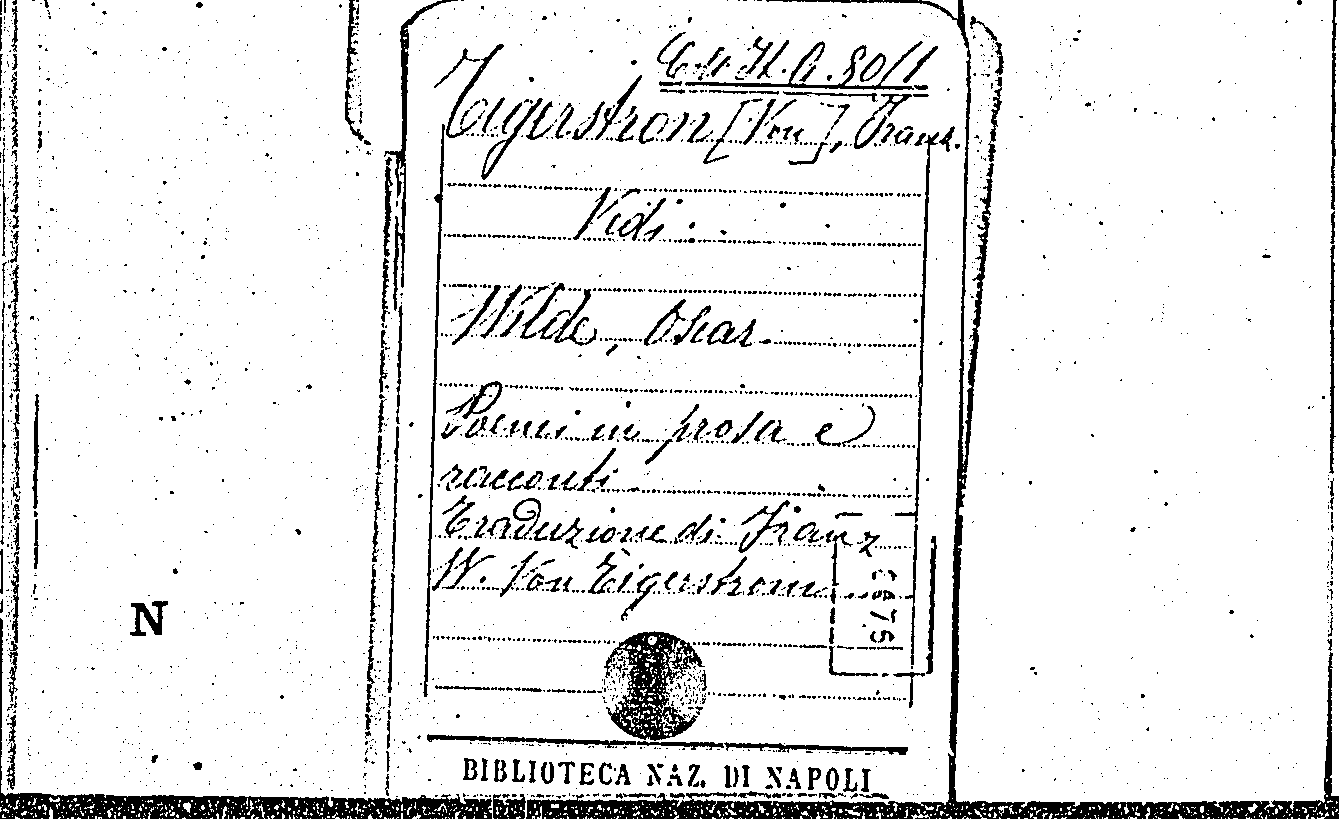 Eigerstron [Von], Franz.
Vedi:
Wilde, Oscar.
Poemi in prosa e
racconti.
Traduzione di Franz
W. Von Eigerstrom
6676
N
BIBLIOTECA NAZ. DI NAPOLI